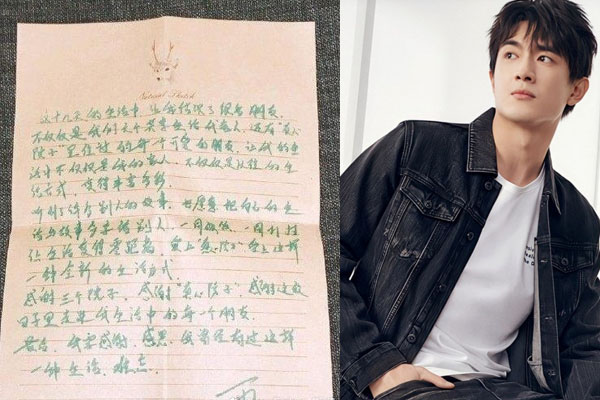 Natural Sketch
这十几天的生活中，让我结识了很多朋友，
不仅仅是我们天天共享生活的家人，还有"真心
院子"里住过的每个可爱的朋友，让我的生
活中不仅仅是我的家人，不仅仅是以往的生
活方式，变得丰富多彩。
听到了许多别人的故事，也愿意把自己的生
活与故事分享给别人，一同做饭，一同打扫
让生活变得更，爱上"院子"爱上这样
一种全新的生活方式。
感谢三个院子，感谢"真心院子"，感谢这段
日子里走进我生活中的每一个朋友。
最后，我要感谢，感恩，我曾经有过这样
一种生活，难忘。